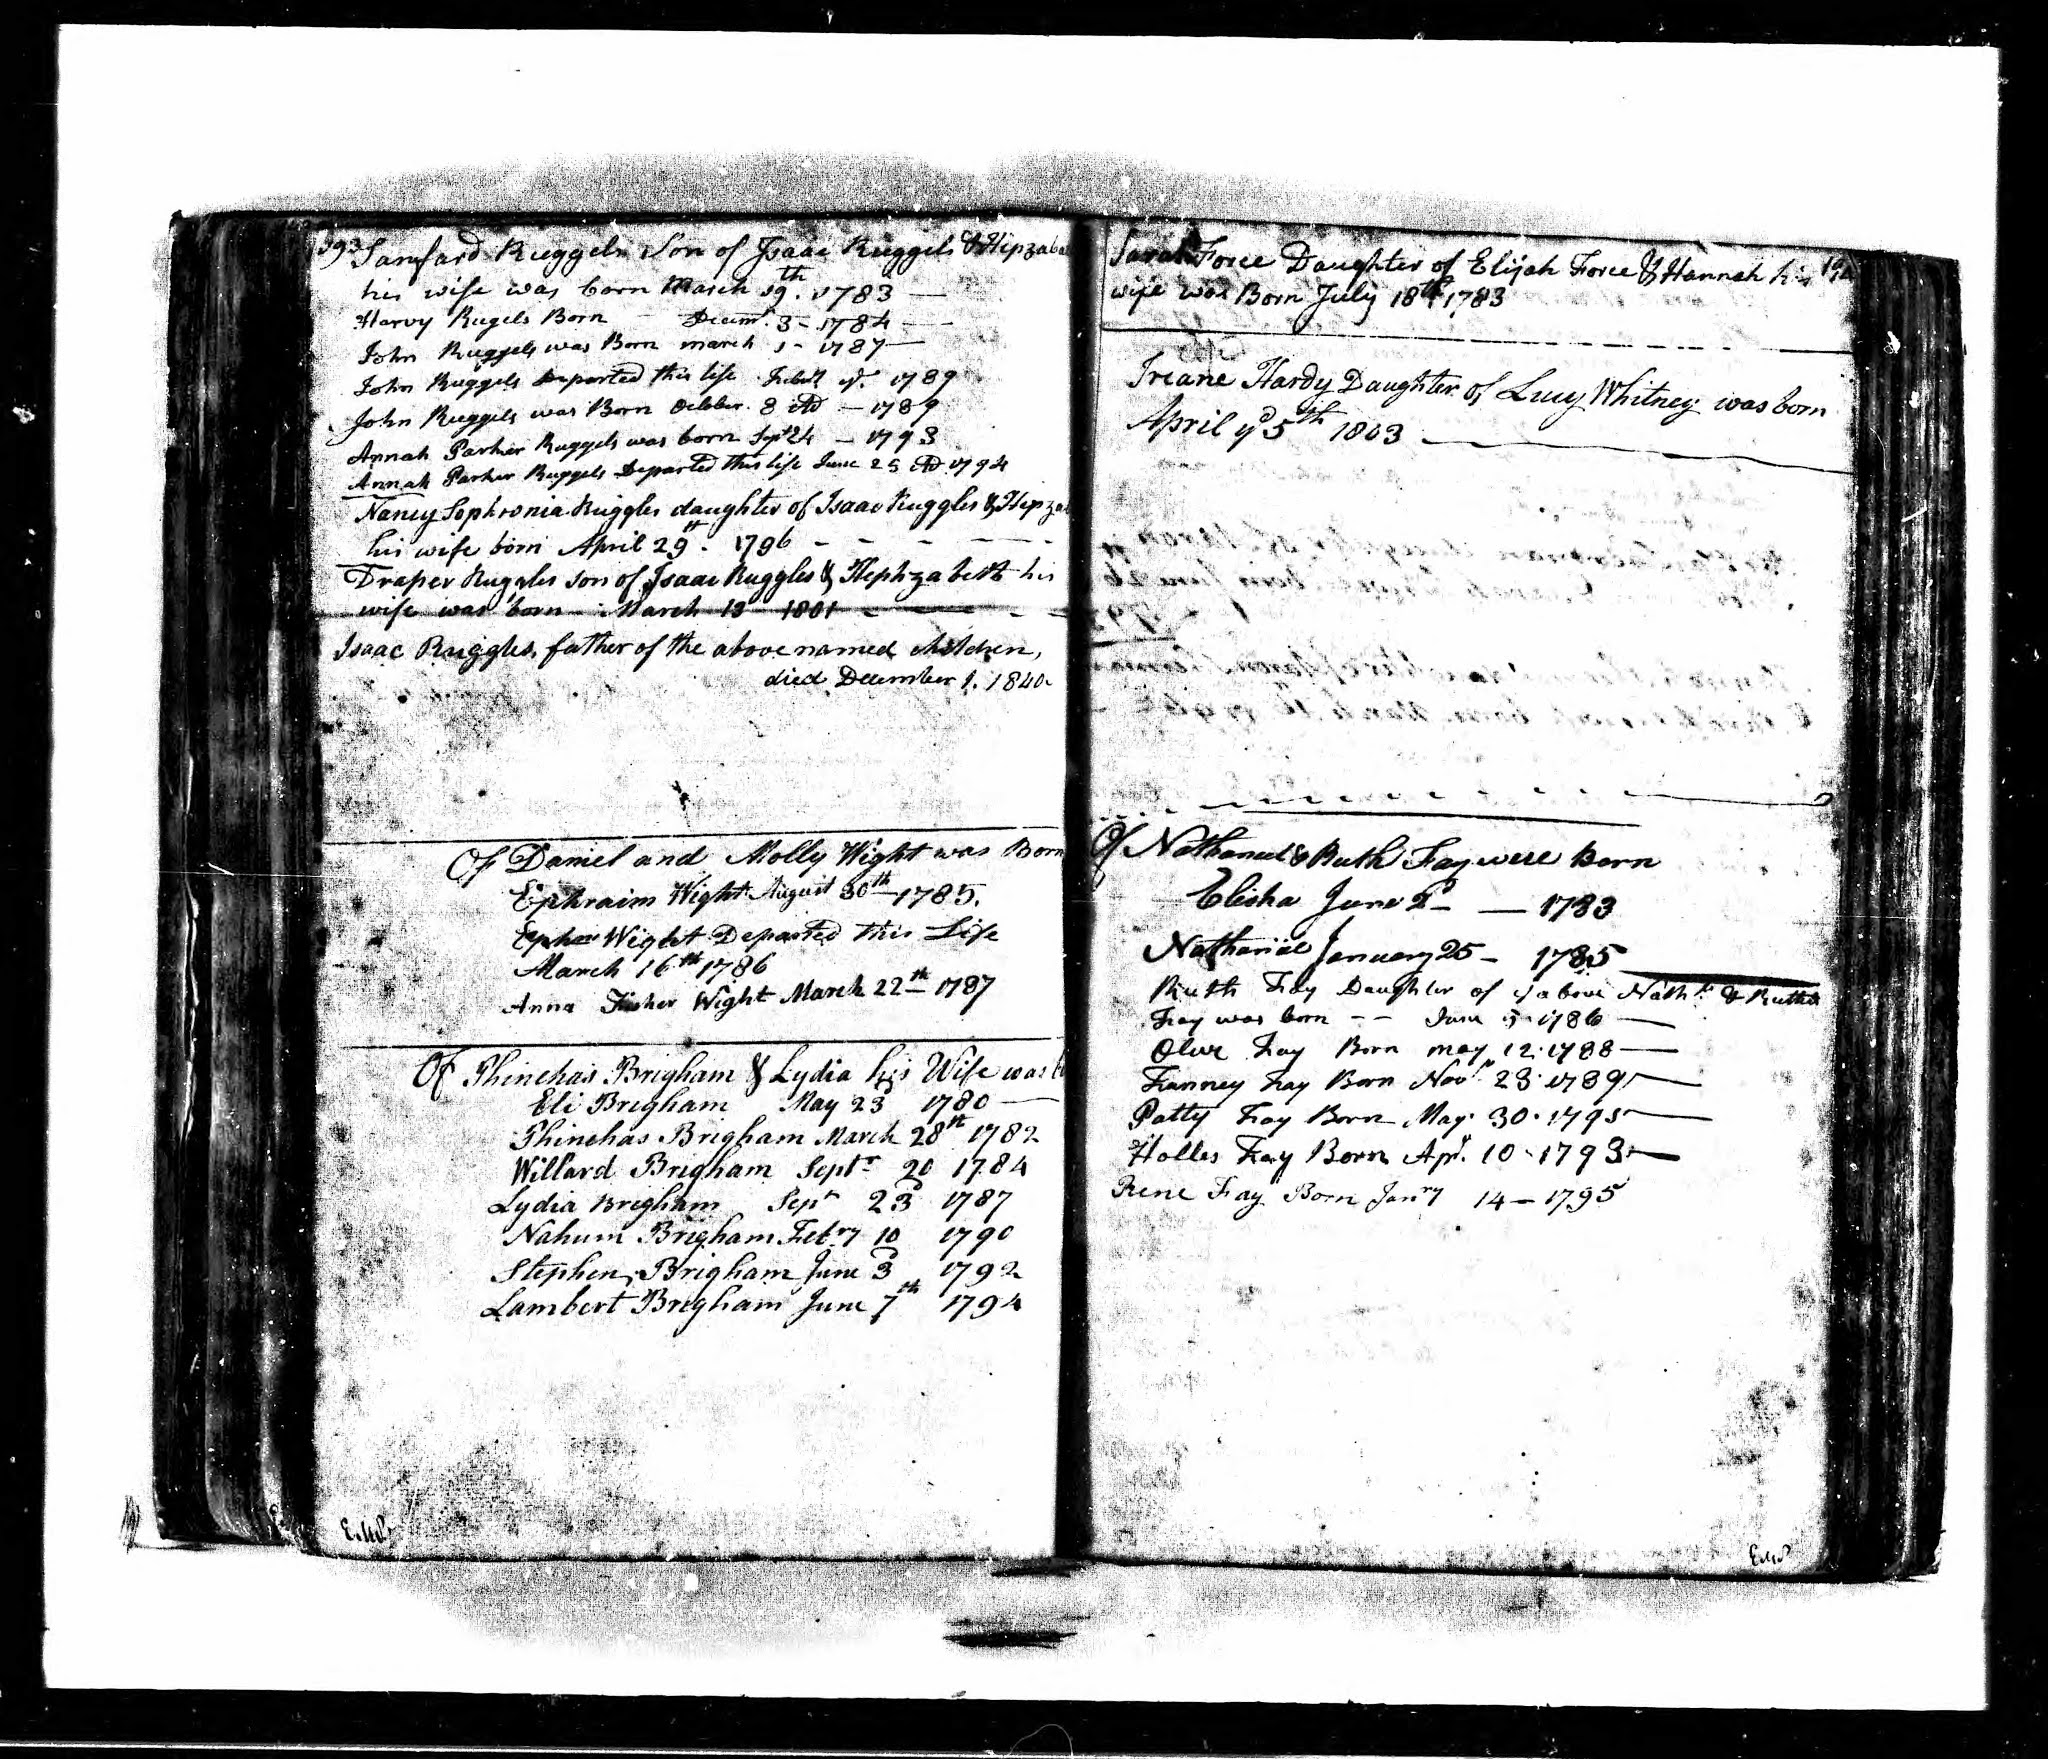 193 Samfard Ruggels Son of Isaac Ruggels & Hipzaba
his wife was born March 19th. 1783
Harvy Rugels Born Decmr. 3 - 1784
John Ruggels was Born march 1 - 1787
John Ruggels Departed this life 1789
John Ruggels was Born October. 8 AD - 1789
Annah Parker Ruggels was born Sept 24 - 1793
Annah Parker Ruggels Departed this life June 25 AD 1794
Nancy Sophronia Ruggles daughter of Isaac Ruggles & Hepza
his wife born April 29th. 1796
Draper Ruggles son of Isaac Ruggles & Hephzabeth his
wife was born March 13 1801
Isaac Ruggles, father of the above named children,
died December 1. 1840.
Of Daniel and Molly Wight was Born
Ephraim Wight August 30th 1785.
Ephm Wight Departed this Life
March 16th 1786
Anna Fisher Wight March 22th 1787
Of Phinehas Brigham & Lydia his Wife was
Eli Brigham May 23d 1780
Phinehas Brigham March 28th 1782
Willard Brigham Septr 20 1784
Lydia Brigham Sepr 23d 1787
Nahum Brigham Febry 10 1790
Stephen Brigham June 3d 1792
Lambert Brigham June 7th 1794
Sarah Force Daughter of Elijah Force & Hannah his
wife was Born July 18th 1783
Ireane Hardy Daughter of Lucy Whitney was born
April yd 5th 1803
Of Nathaniel & Ruth Fay were Born
Elisha June 2d 1783
Nathaniel January 25 - 1785
Ruth Fay Daughter of ye above Nathl. & Ruth
Fay was born -- June 5 - 1786
Olive Fay Born may 12 - 1788
Fanney Fay Born Novr 23 - 1789
Patty Fay Born May 30 - 1791
Holles Fay Born Apr. 10 - 1793
Rene Fay Born Janry 14 - 1795